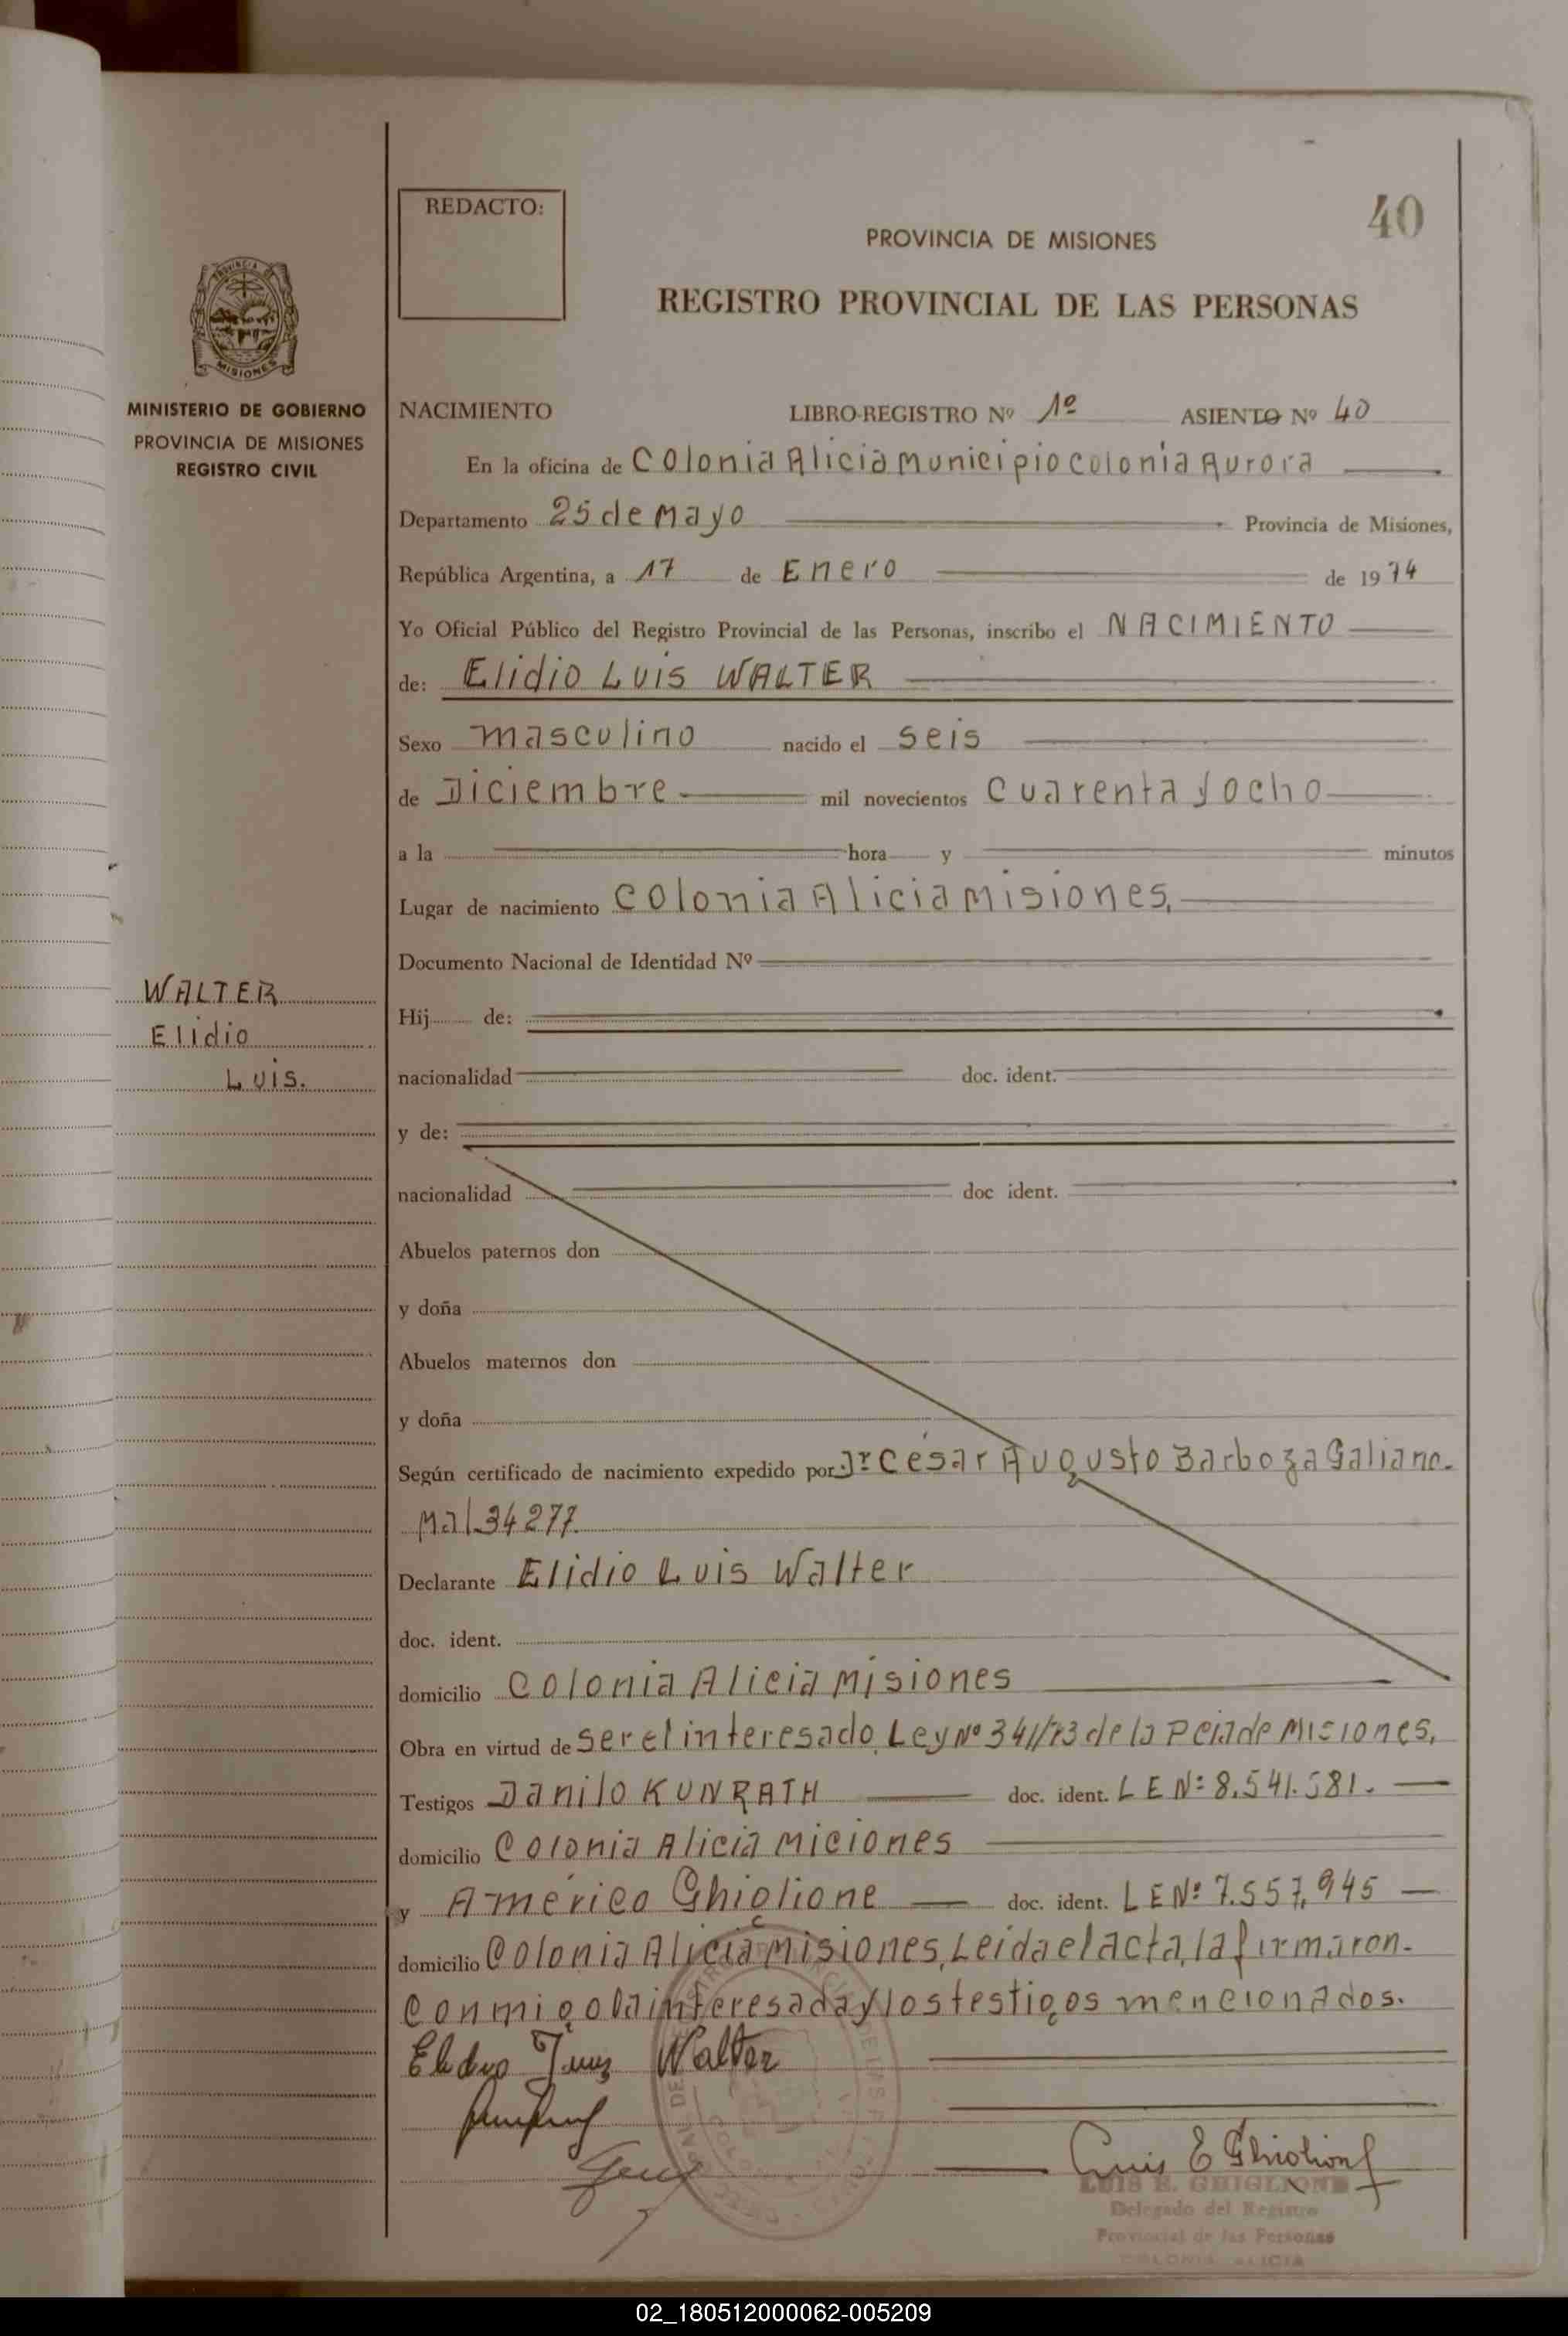 REDACTO:
40
PROVINCIA DE MISIONES
REGISTRO PROVINCIAL DE LAS PERSONAS
PROVINCIA DE
MISIONES
MINISTERIO DE GOBIERNO
PROVINCIA DE MISIONES
REGISTRO CIVIL
NACIMIENTO LIBRO-REGISTRO Nº 1º ASIENTO Nº 40
En la oficina de Colonia Alicia Municipio Colonia Aurora
Departamento 25 de Mayo Provincia de Misiones,
República Argentina, a 17 de Enero de 1974
Yo Oficial Público del Registro Provincial de las Personas, inscribo el NACIMIENTO
de: Elidio Luis WALTER
Sexo masculino nacido el seis
de Diciembre mil novecientos cuarenta y ocho
a la hora y minutos
Lugar de nacimiento Colonia Alicia Misiones,
Documento Nacional de Identidad Nº
WALTER
Elidio
Luis.
Hij de:
nacionalidad doc. ident.
y de:
nacionalidad doc ident.
Abuelos paternos don
y doña
Abuelos maternos don
y doña
Según certificado de nacimiento expedido por Dr César Augusto Barboza Galiano.
Mal 34277.
Declarante Elidio Luis Walter
doc. ident.
domicilio Colonia Alicia Misiones
Obra en virtud de ser el interesado, Ley Nº 341/73 de la Pcia de Misiones,
Testigos Danilo KUNRATH doc. ident. L E Nº 8.541.581.
domicilio Colonia Alicia Miciones
y Américo Ghiglione doc. ident. L E Nº 7.557.945
domicilio Colonia Alicia Misiones, Leída el acta, la firmaron.
conmigo la interesada y los testigos mencionados.
Elidio Luis Walter
Luis E Ghiglione
LUIS E. GHIGLIONE
Delegado del Registro
Provincial de las Personas
COLONIA ALICIA
02_180512000062-005209